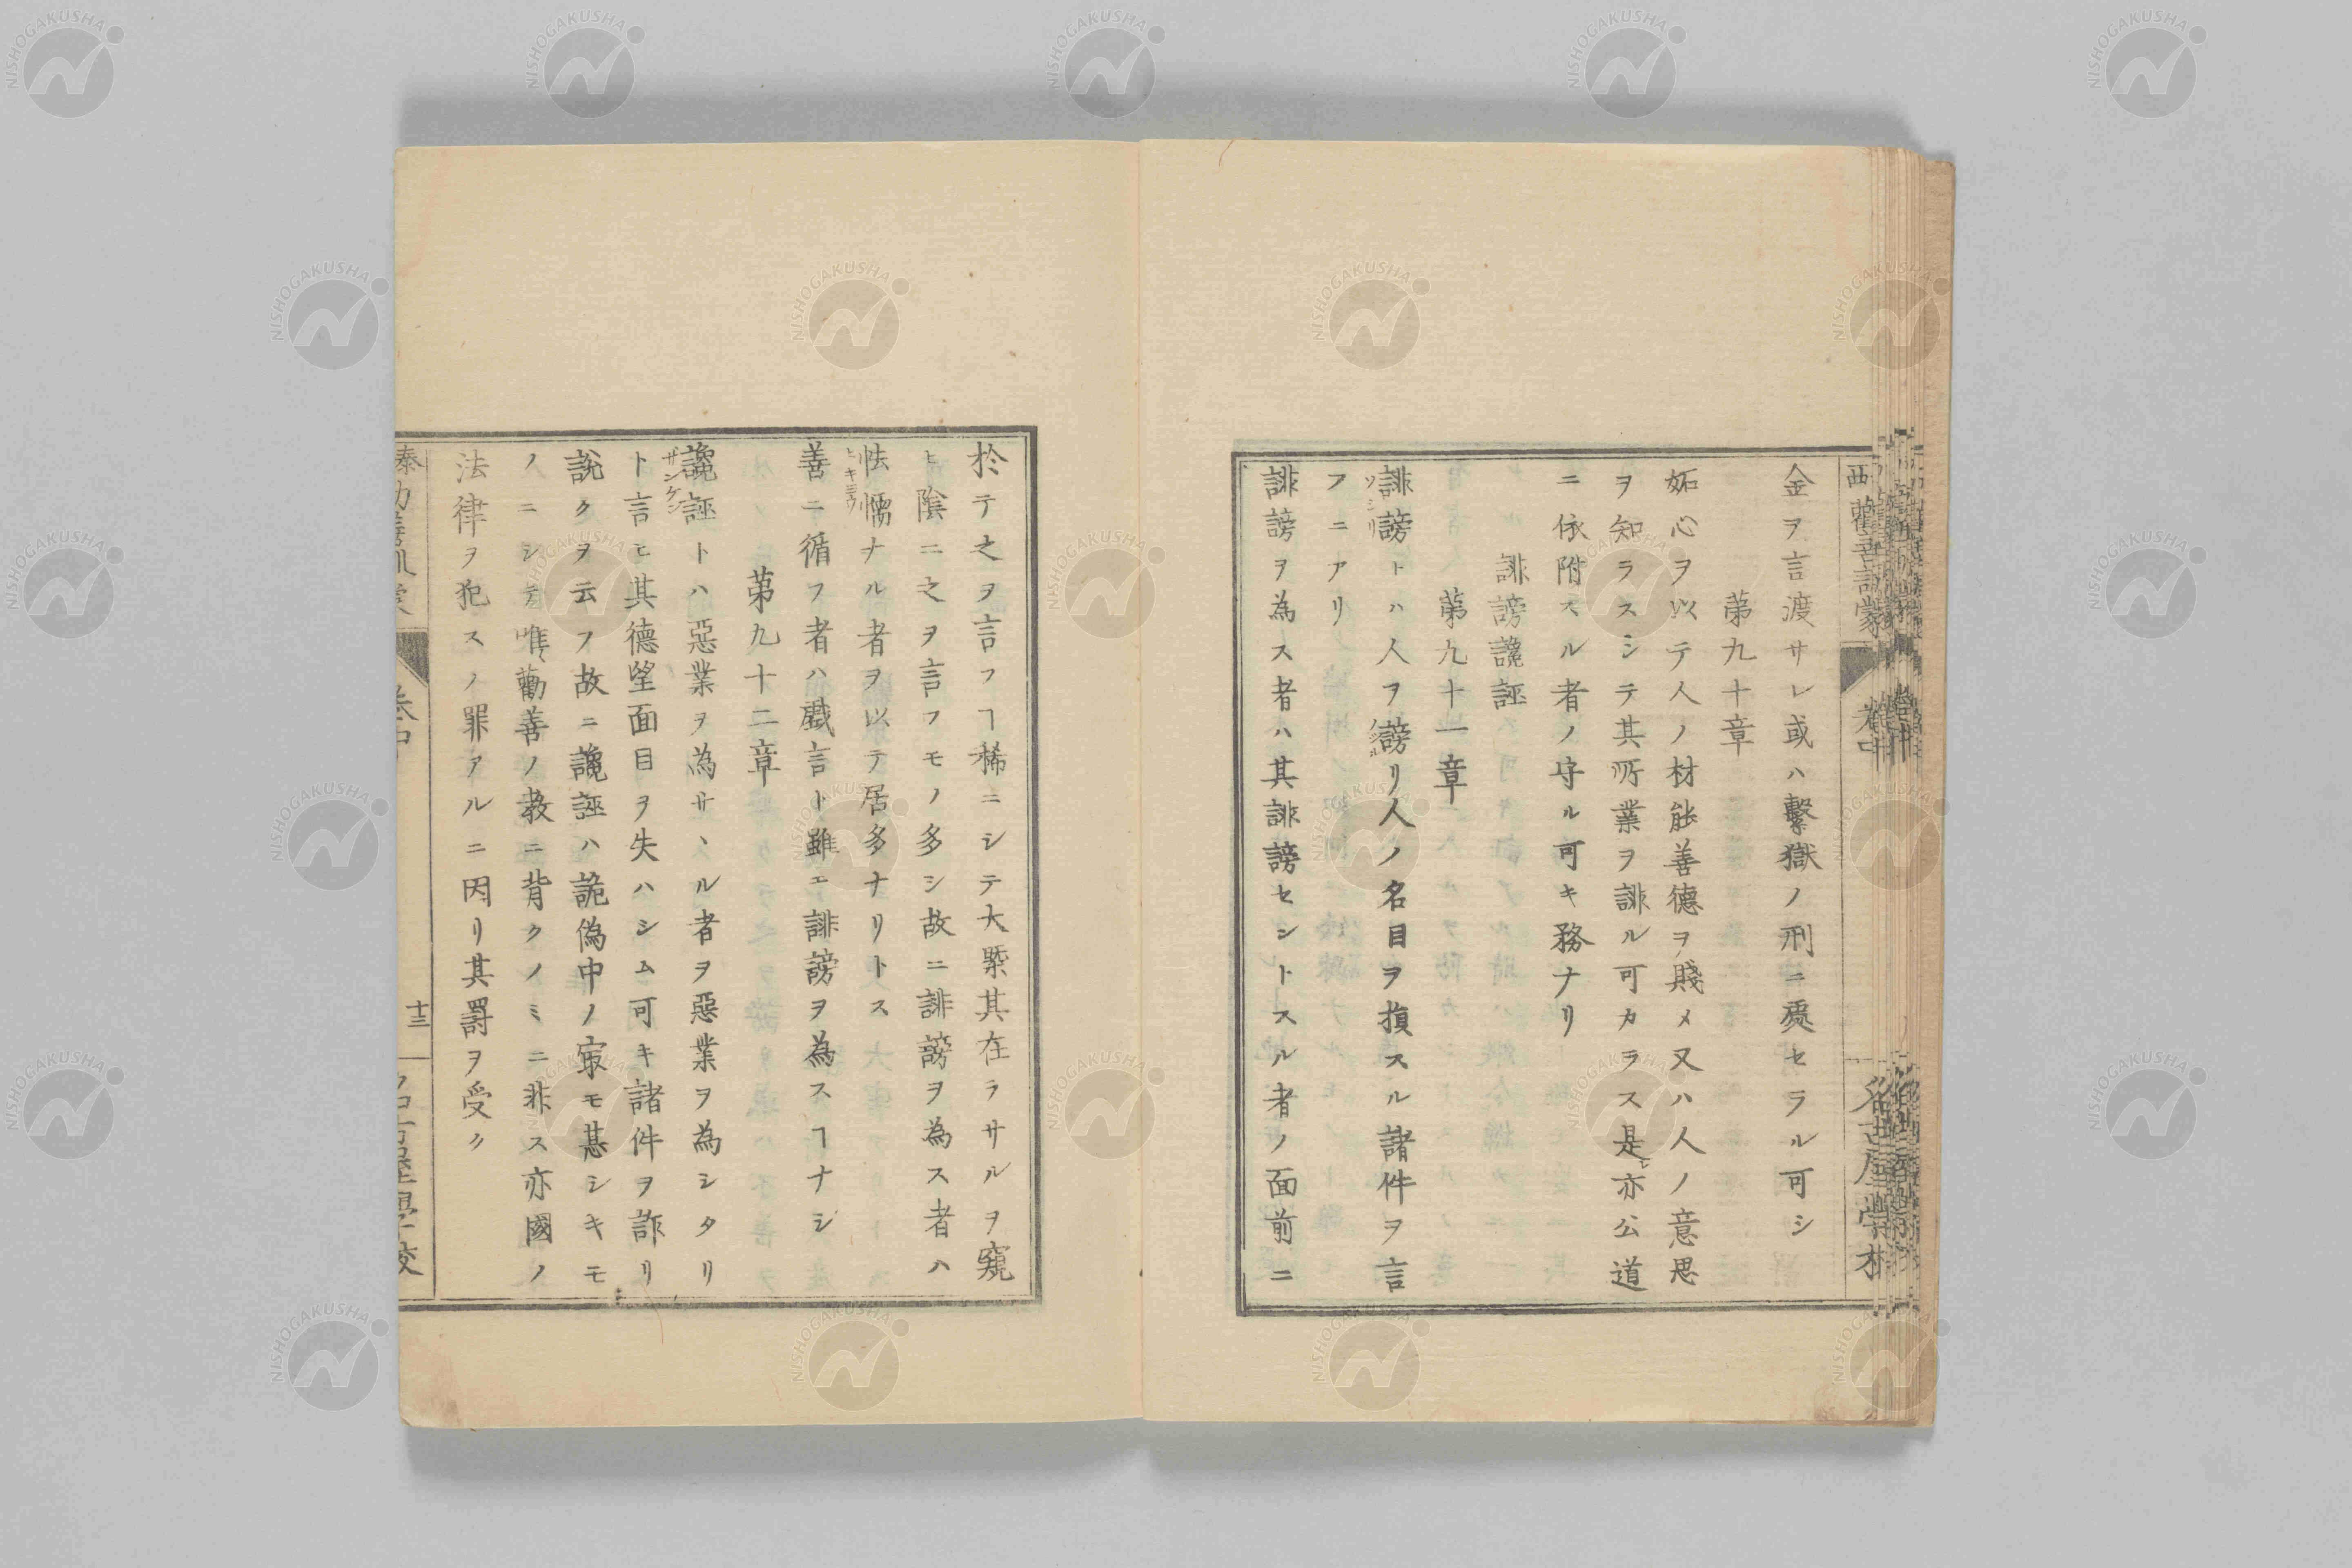 金ヲ言渡サレ或ハ繫獄ノ刑ニ處セラル可シ
第九十章
妬心ヲ以テ人ノ材能善德ヲ賤メ又ハ人ノ意思
ヲ知ラスシテ其所業ヲ誹ル可カラス是亦公道
ニ依附スル者ノ守ル可キ務ナリ
誹謗讒誣
第九十一章
誹謗トハ人ヲ謗リ人ノ名目ヲ損スル諸件ヲ言
ソシリ
ソシル
フニアリ
誹謗ヲ為ス者ハ其誹謗セシトスル者ノ面前ニ
於テ之ヲ言フヿ稀ニシテ大槩其在ラサルヲ窺
ヒ陰ニ之ヲ言フモノ多シ故ニ誹謗ヲ為ス者ハ
怯懦ナル者ヲ以テ居多ナリトス
善ニ循フ者ハ戲言ト雖モ誹謗ヲ為スヿナシ
第九十二章
讒誣トハ惡業ヲ為サヽル者ヲ惡業ヲ為シタリ
サンケン
ト言ヒ其德望面目ヲ失ハシム可キ諸件ヲ詐リ
說クヲ云フ故ニ讒誣ハ詭偽中ノ㝡モ甚シキモ
ノニシテ唯勸善ノ教ニ背クノミニ非ス亦國ノ
法律ヲ犯スノ罪アルニ因リ其罰ヲ受ク
十三
NISHOGAKUSHA